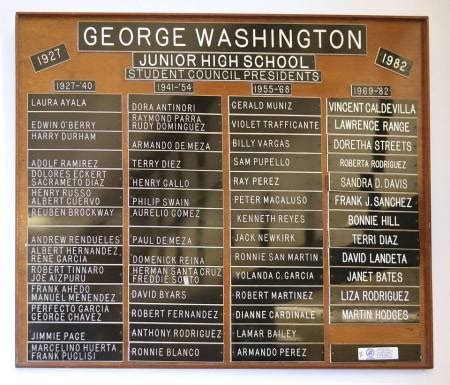 GEORGE WASHINGTON
1927
1982
JUNIOR HIGH SCHOOL
STUDENT COUNCIL PRESIDENTS
1927-'40
LAURA AYALA
EDWIN O'BERRY
HARRY DURHAM
ADOLF RAMIREZ
DOLORES ECKERT
SACRAMETO DIAZ
HENRY RUSSO
ALBERT CUERVO
REUBEN BROCKWAY
ANDREW RENDUELES
ALBERT HERNANDEZ
RENE GARCIA
ROBERT TINNARO
JOE AIZPURU
FRANK AHEDO
MANUEL MENENDEZ
PERFECTO GARCIA
GEORGE CHAVEZ
JIMMIE PAGE
MARCELINO HUERTA
FRANK PUGLISI
1941-'54
DORA ANTINORI
RAYMOND PARRA
RUDY DOMINGUEZ
ARMANDO DE MEZA
TERRY DIEZ
HENRY GALLO
PHILIP SWAIN
AURELIO GOMEZ
PAUL DE MEZA
DOMENICK REINA
HERMAN SANTA CRUZ
FREDDIE SOTO
DAVID BYARS
ROBERT FERNANDEZ
ANTHONY RODRIGUEZ
RONNIE BLANCO
1955-'68
GERALD MUNIZ
VIOLET TRAFFICANTE
BILLY VARGAS
SAM PUPELLO
RAY PEREZ
PETER MACALUSO
KENNETH REYES
JACK NEWKIRT
RONNIE SAN MARTIN
YOLANDA C. GARCIA
ROBERT MARTINEZ
DIANNE CARDINALE
LAMAR BAILEY
ARMANDO PEREZ
1969-'82
VINCENT CALDEVILLA
LAWRENCE RANGE
DORETHA STREETS
ROBERTA RODRIGUEZ
SANDRA D. DAVIS
FRANK J. SANCHEZ
BONNIE HILL
TERRI DIAZ
DAVID LANDETA
JANET BATES
LIZA RODRIGUEZ
MARTIN HODGES